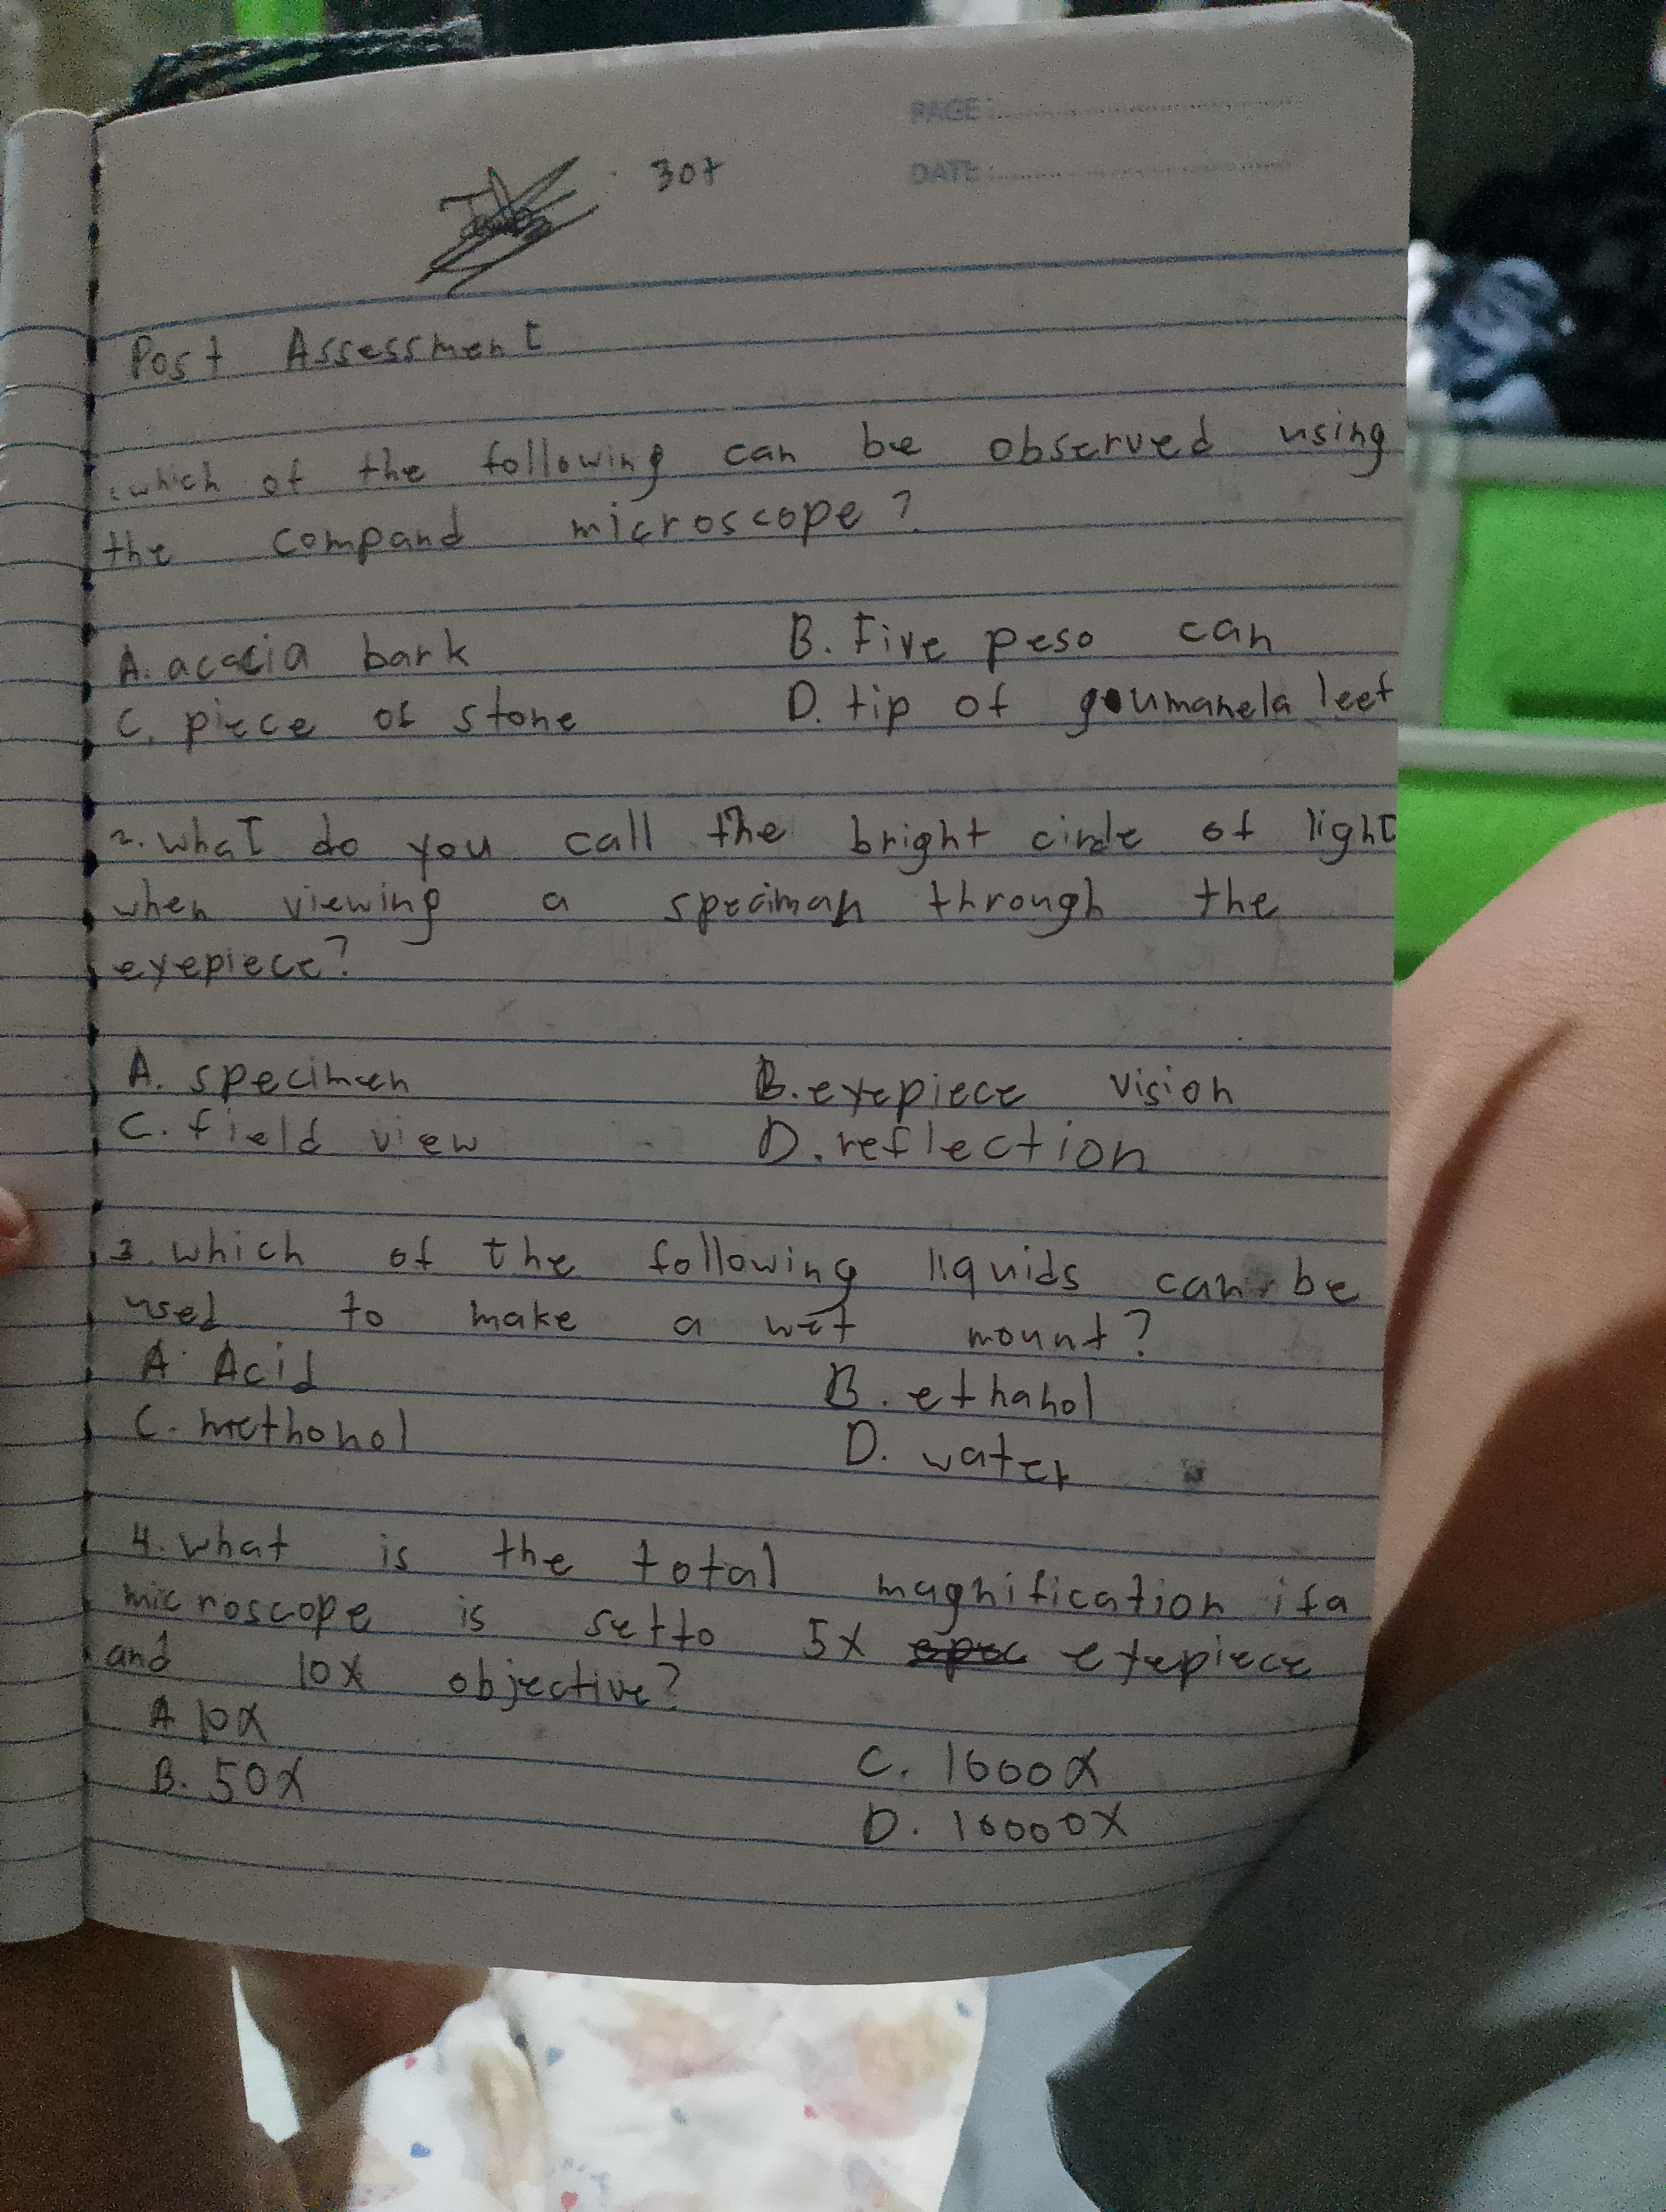 PAGE:
DATE:
Post Assessment
which of the following can be observed using
the compand microscope?
A. acacia bark B. Five peso can
C. piece of stone D. tip of goumamela leef
2. what do you call the bright circle of light
when viewing a speciman through the
eyepiece?
A. specimen B. eyepiece vision
C. field view D. reflection
3. which of the following liquids can be
used to make a wet mount?
A. Acid B. ethanol
C. methonol D. water
4. what is the total magnification if a
microscope is set to 5x eyepiece
and 10x objective?
A 10x
B. 50x C. 1000x
D. 10000x